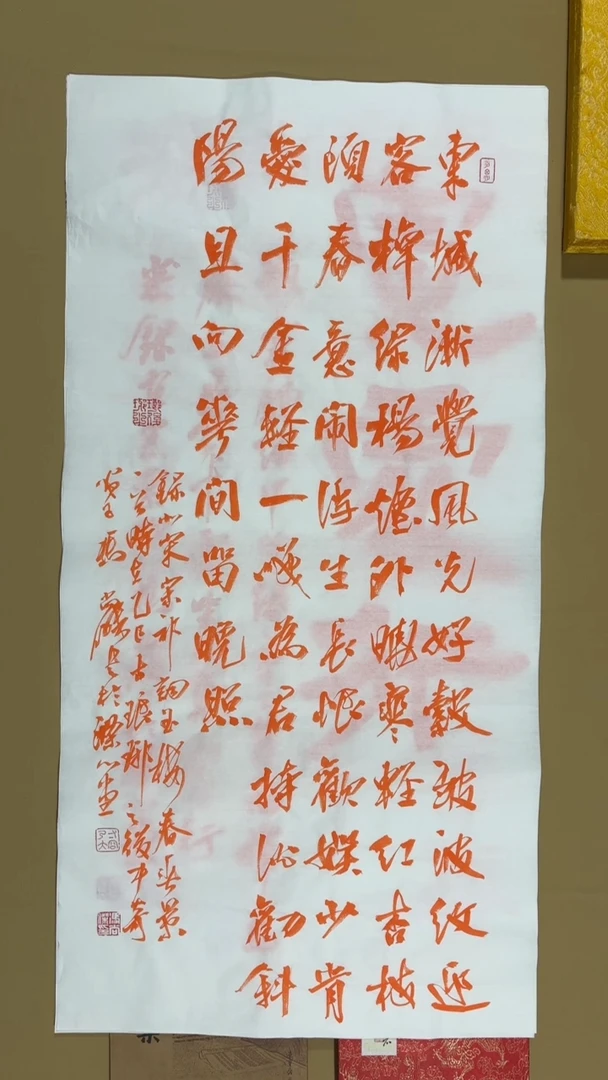 東城漸覺風光好縠皺波紋迎
客棹綠楊煙外曉寒輕紅杏枝
頭春意鬧浮生長恨歡娛少肯
愛千金輕一咲為君持酒勸斜
陽且向華間留晚照
錄北宋宋祁詞玉樓春春景
一首時在乙巳古琅琊之後中奇
書於心堂